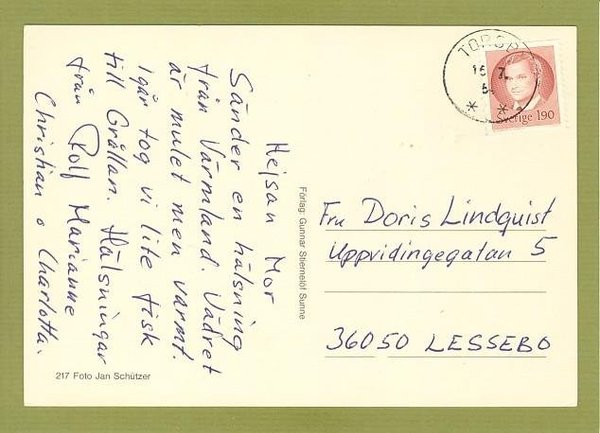 Hejsan Mor
Sänder en hälsning
från Värmland. Vädret
är mulet men varmt.
Igår tog vi lite fisk
till Grållan. Hälsningar
från Rolf Marianne
Christian o Charlotta.
217 Foto Jan Schützer
Förlag: Gunnar Stiernelöf Sunne
TORSBY
Sverige 190
Fru Doris Lindquist
Uppvidingegatan 5
36050 LESSEBO